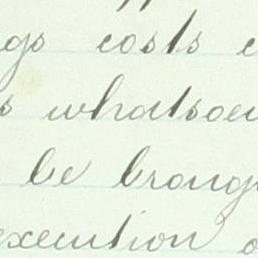 gs costs
s whatsoev
be broug
execution o